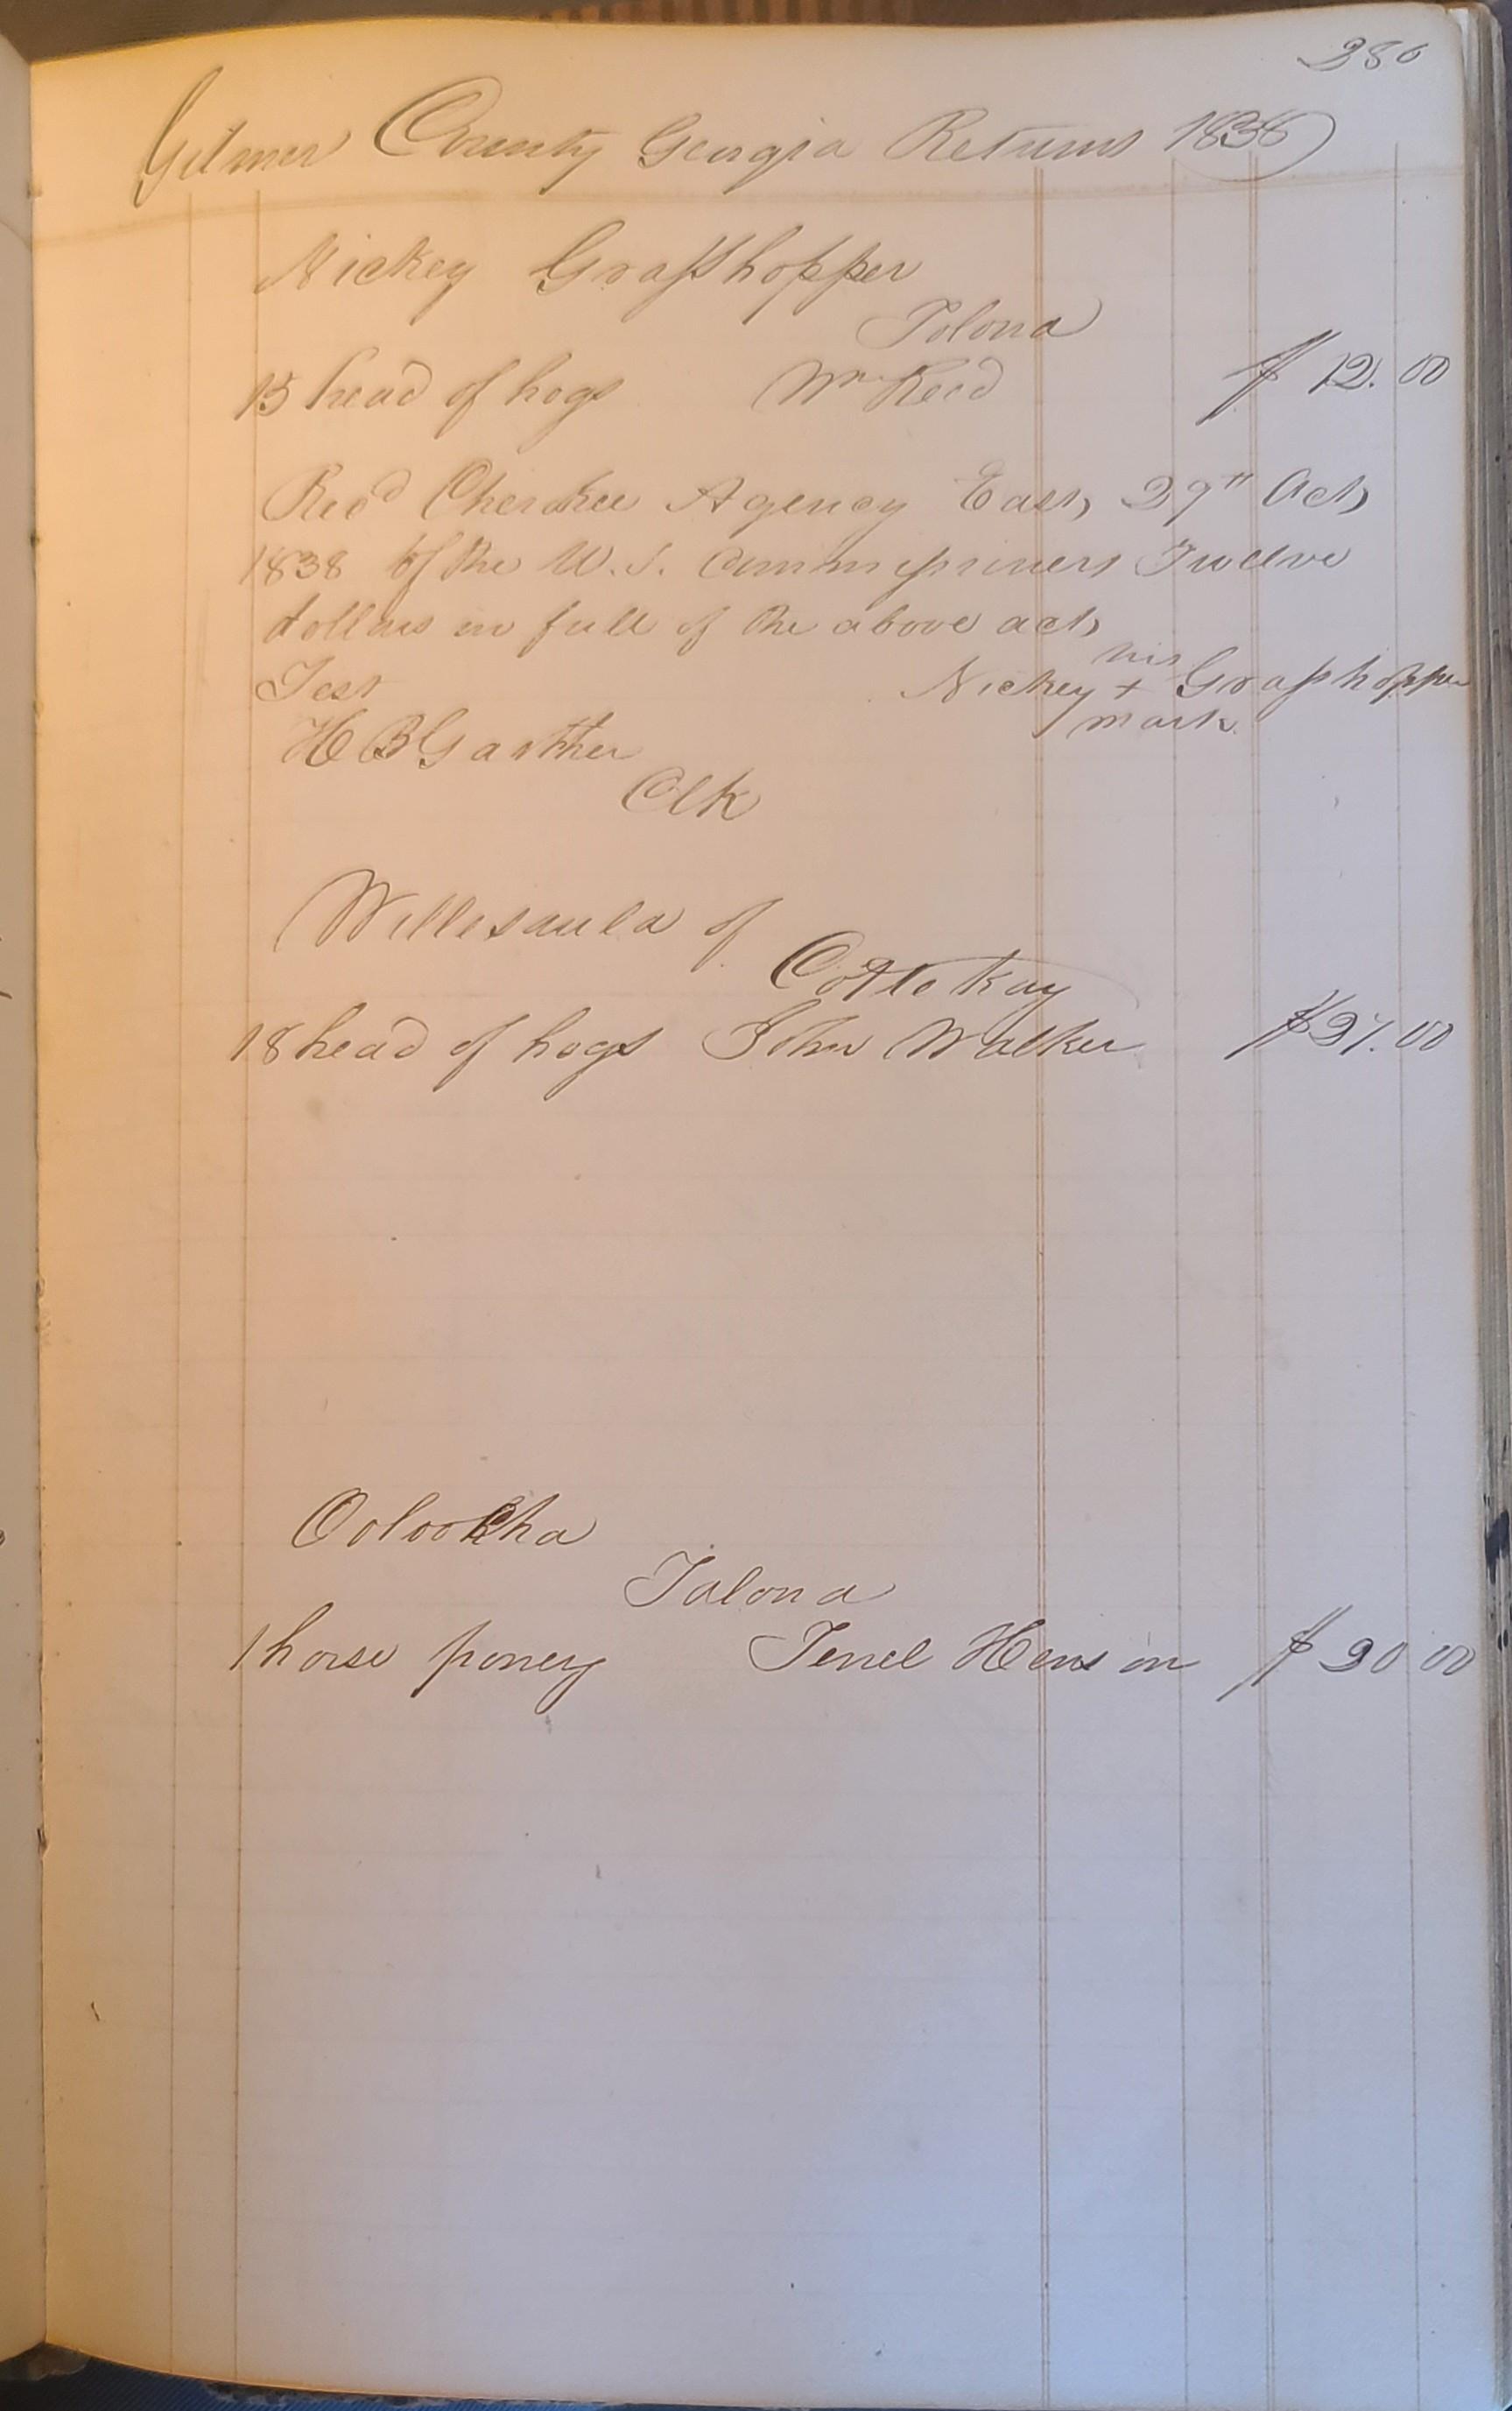 280
Gilmer County Georgia Returns 1838
Nickey Grasshopper
Tolona
15 head of hogs Wm Reed $ 12.00
Recd Cherokee Agency East, 29th Oct,
1838 of the U.S. Commissioners Twelve
dollars in full of the above act,
his
Test Nickey + Grasshopper
mark
H B Gaither
Clk
Willesaula of
18 head of hogs John Walker $27.00
Ooloocha
Talona
1 horse poney Terrel Henson $ 20 00